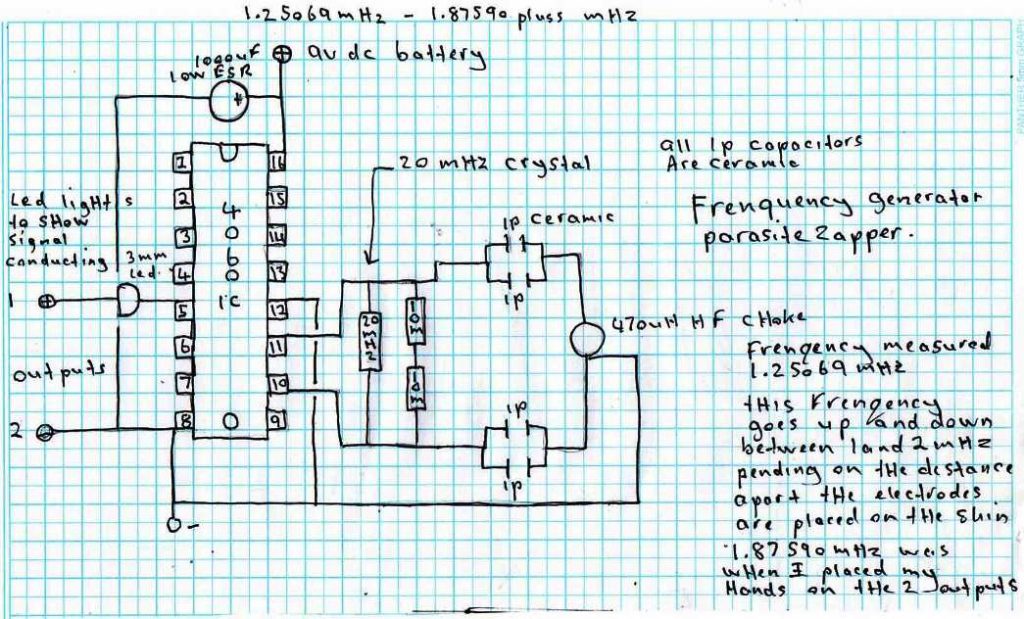 1.25069 mHz - 1.87590 pluss mHz
1000uF
low ESR
+
9v dc battery
PANTHER 5mm GRAPH
20 mHz crystal
all 1p capacitors
Are ceramic
1
2
3
4
5
6
7
8
16
15
14
13
12
11
10
9
4
0
6
0
IC
O
Led lights
to SHow
signal
conducting
3mm
Led.
1
outputs
2
-
20
m
H
Z
10m
10m
1p ceramic
1p
1p
1p
Frenquency generator
parasite Zapper.
470uH HF cHoke
Frenqency measured
1.25069 mHz
tHis Frenqency
goes up and down
between 1 and 2 mHz
pending on tHe distance
apart tHe electrodes
are placed on tHe SKin
1.87590 mHz was
wHen I placed my
Hands on tHe 2 outputs